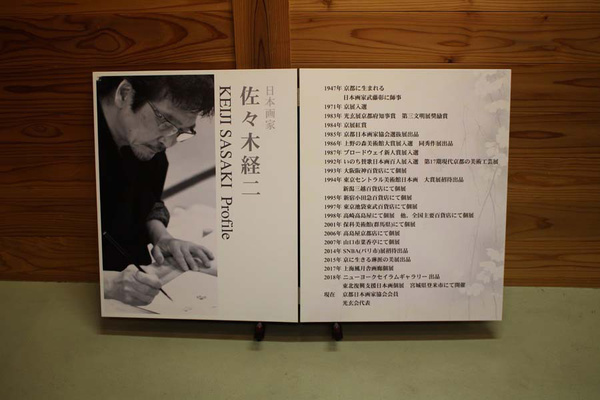 日本画家
佐々木経二
KEIJI SASAKI Profile
1947年 京都に生まれる
日本画家武藤彰に師事
1971年 京展入選
1983年 光玄展京都府知事賞 第三文明展奨励賞
1984年 京展紅賞
1985年 京都日本画家協会選抜展出品
1986年 上野の森美術館大賞展入選 同秀作展出品
1987年 ブロードウェイ新人賞展入選
1992年 いのち賛歌日本画百人展入選 第17期現代京都の美術工芸展
1993年 大阪阪神百貨店にて個展
1994年 東京セントラル美術館日本画 大賞展招待出品
新潟三越百貨店にて個展
1995年 新宿小田急百貨店にて個展
1997年 東京池袋東武百貨店にて個展
1998年 高崎高島屋にて個展 他、全国主要百貨店にて個展
2001年 保科美術館(群馬県)にて個展
2006年 高島屋京都店にて個展
2007年 山口市菜香亭にて個展
2014年 SNBA(パリ市)展招待出品
2015年 京に生きる琳派の美展出品
2017年 上海風月舎画廊個展
2018年 ニューヨークセイラムギャラリー出品
東北復興支援日本画個展 宮城県登米市にて開催
現在 京都日本画家協会会員
光玄会代表